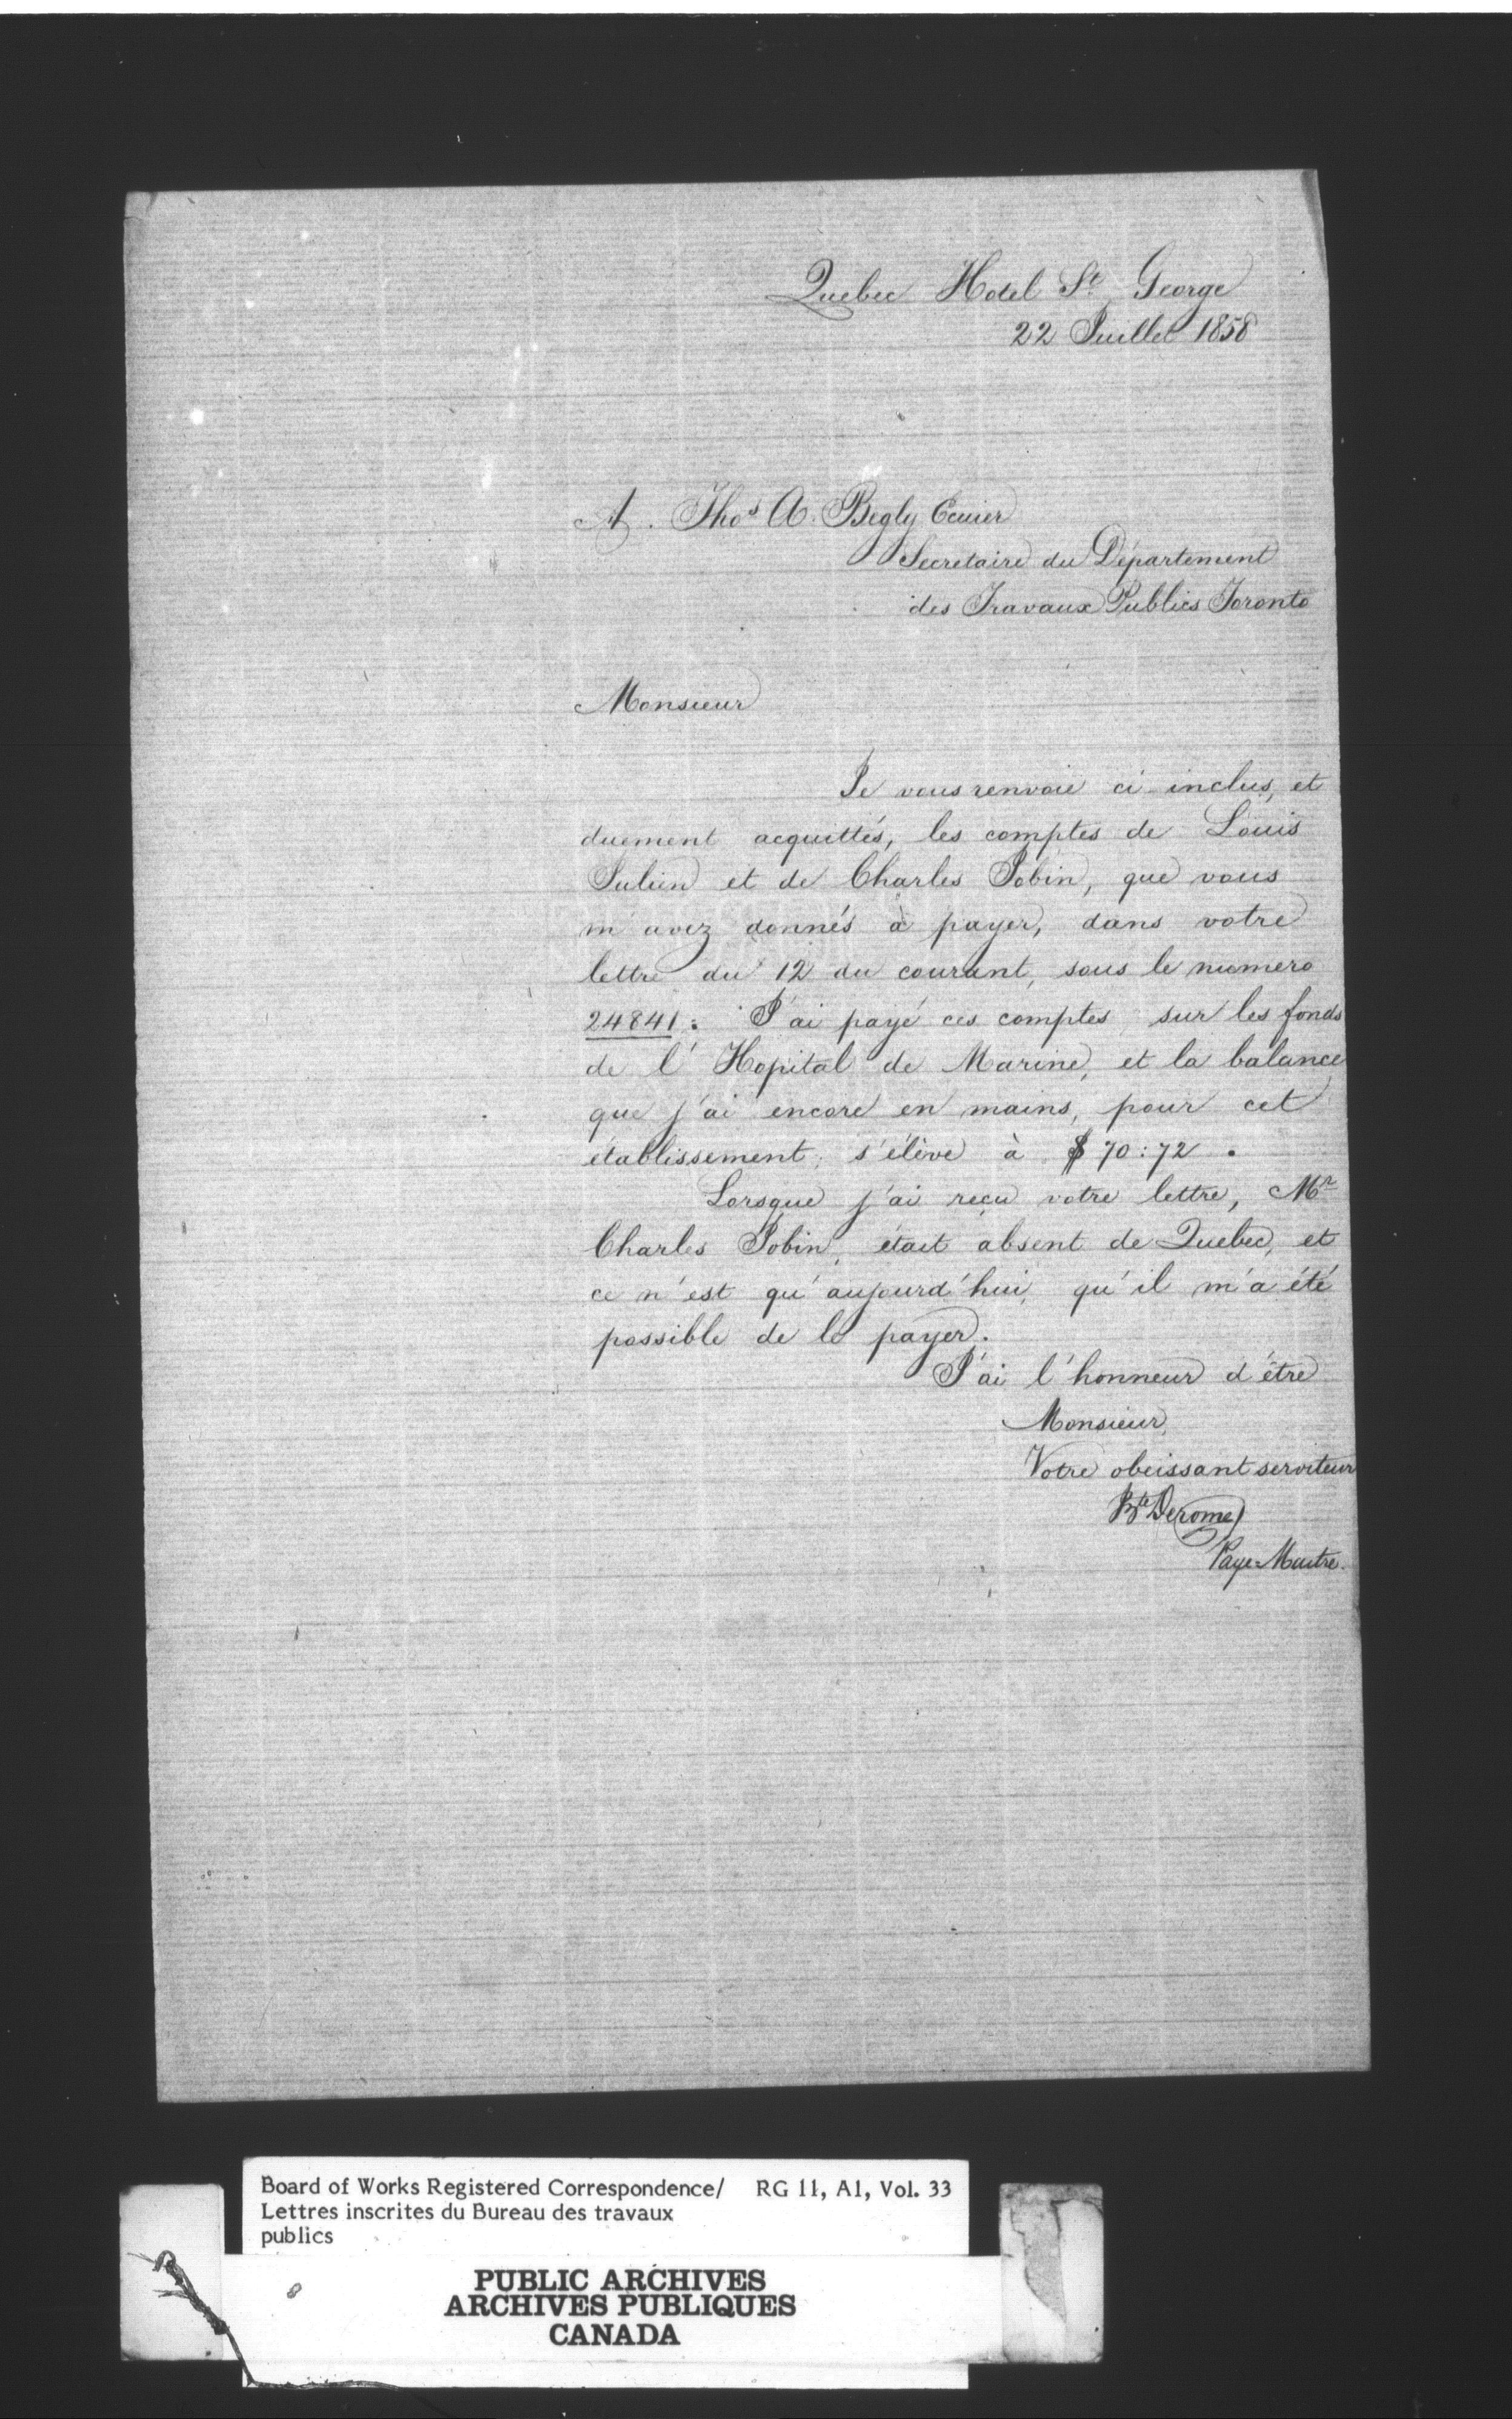 Quebec Hotel St. George
22 Juillet 1858
A. Thos A. Begly Ecuier
Secretaire du Département
des Travaux Publics Toronto
Monsieur
Je vous renvoie ci-inclus, et
duement acquittés, les comptes de Louis
Julien et de Charles Jobin, que vous
m'avez donnés à payer, dans votre
lettre du 12 du courant, sous le numero
24841. J'ai payé ces comptes sur les fonds
de l'Hopital de Marine, et la balance
que j'ai encore en mains, pour cet
établissement, s'élève à $70:72.
Lorsque j'ai reçu votre lettre, Mr
Charles Jobin, était absent de Quebec, et
ce n'est qu'aujourd'hui, qu'il m'a été
possible de le payer.
J'ai l'honneur d'être
Monsieur,
Votre obeissant serviteur
Bte Derome
Paye-Maitre.
Board of Works Registered Correspondence/ RG 11, A1, Vol. 33
Lettres inscrites du Bureau des travaux
publics
PUBLIC ARCHIVES
ARCHIVES PUBLIQUES
CANADA